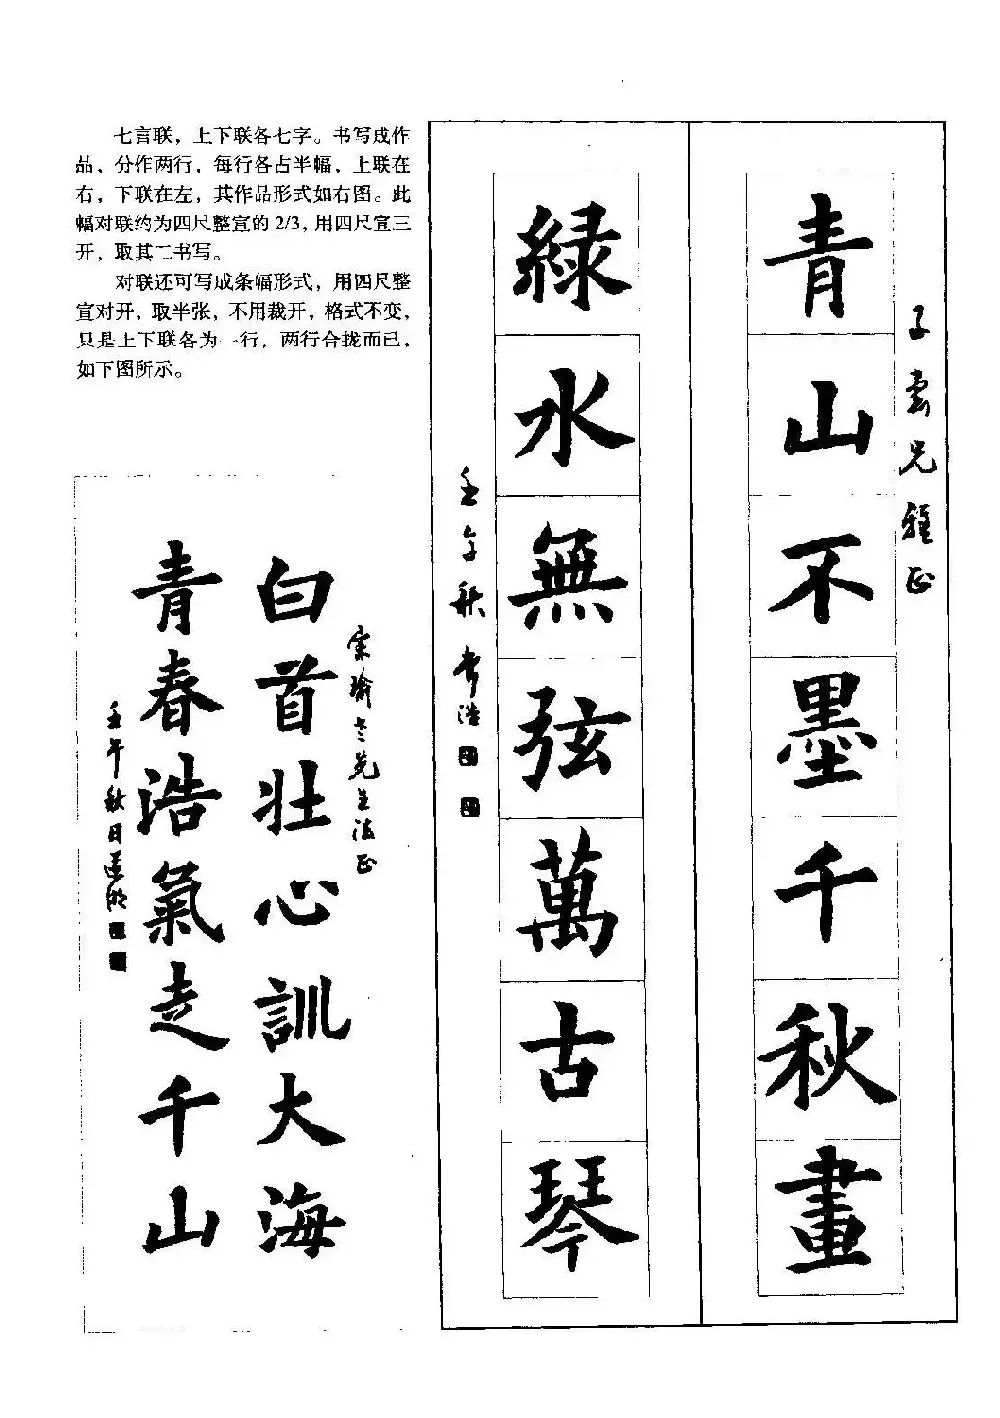 七言联，上下联各七字。书写成作
品，分作两行，每行各占半幅，上联在
右，下联在左，其作品形式如右图。此
幅对联约为四尺整宣的 2/3，用四尺宣三
开，取其二书写。
对联还可写成条幅形式，用四尺整
宣对开，取半张，不用裁开，格式不变，
只是上下联各为一行，两行合拢而已，
如下图所示。
子雲兄雅正
青山不墨千秋畫
綠水無弦萬古琴
壬午秋
白首壯心訓大海
青春浩氣走千山
壬午秋日